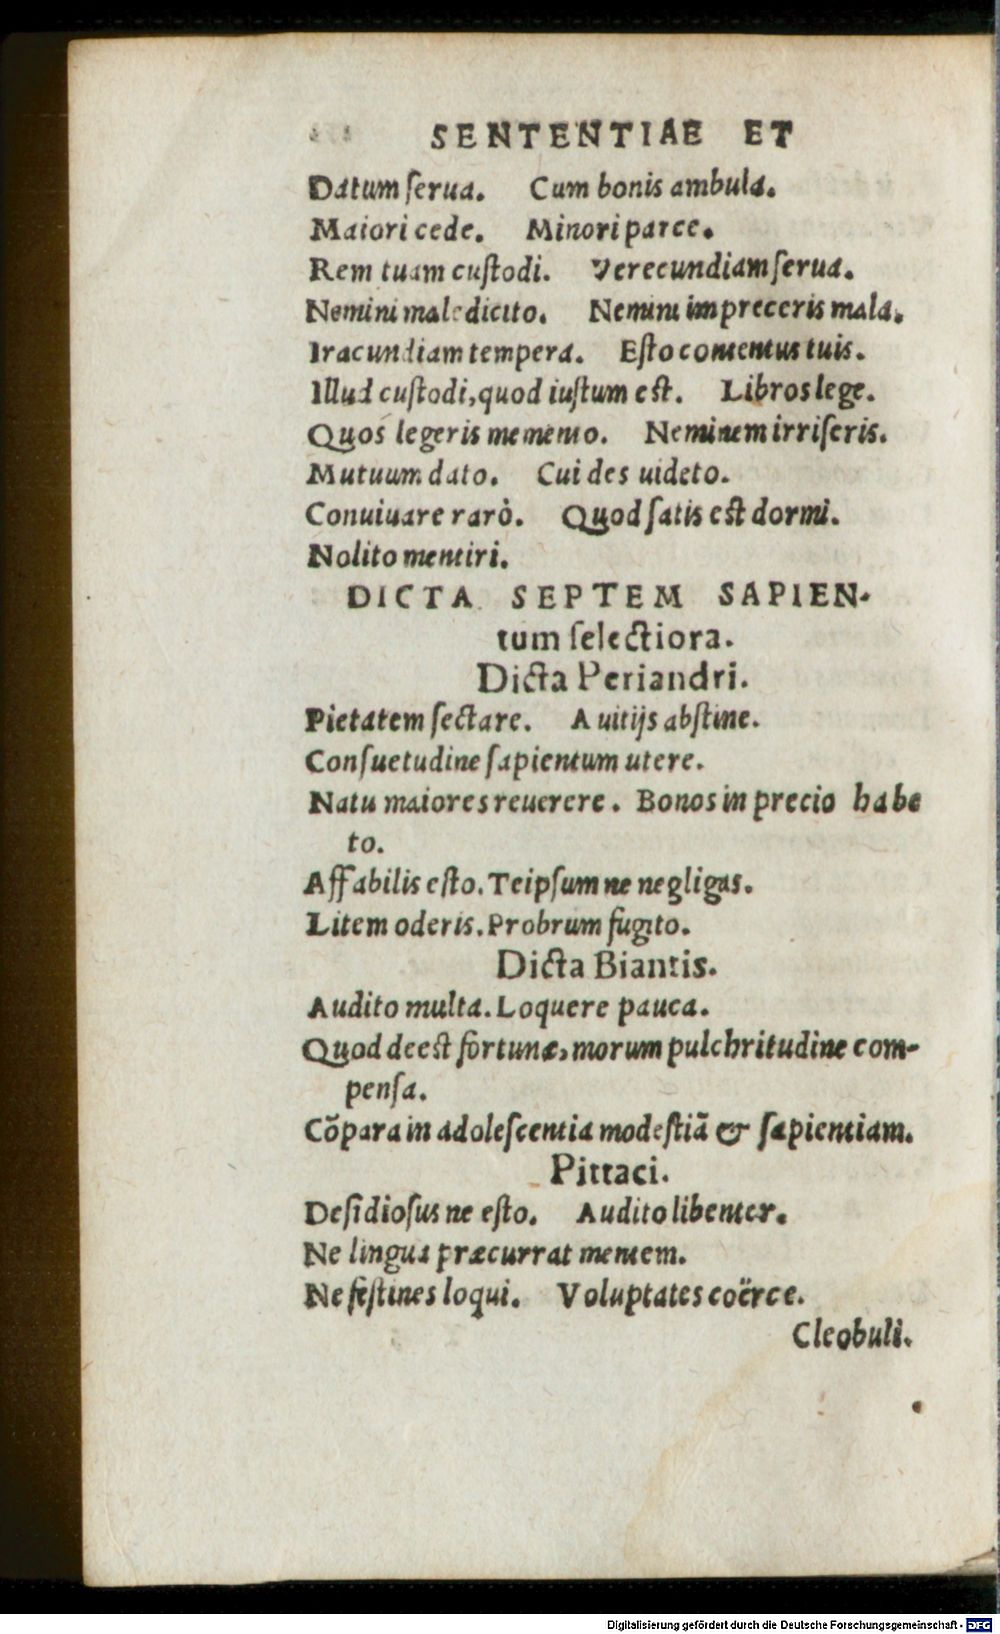 SENTENTIAE ET
Datum ſerua. Cum bonis ambula.
Maiori cede. Minori parce.
Rem tuam cuſtodi. Verecundiam ſerua.
Nemini maledicito. Nemini impreceris mala.
Iracundiam tempera. Eſto contentus tuis.
Illud cuſtodi, quod iuſtum est. Libros lege.
Quos legeris memento. Neminem irriſeris.
Mutuum dato. Cui des uideto.
Conuiuare rarò. Quod ſatis est dormi.
Nolito mentiri.
DICTA SEPTEM SAPIEN-
tum ſelectiora.
Dicta Periandri.
Pietatem ſectare. A uitijs abſtine.
Conſuetudine ſapientum utere.
Natu maiores reuerere. Bonos in precio habe
to.
Affabilis eſto. Teipſum ne negligas.
Litem oderis. Probrum fugito.
Dicta Biantis.
Audito multa. Loquere pauca.
Quod deest fortunæ, morum pulchritudine com-
penſa.
Cõpara in adoleſcentia modeſtiã & ſapientiam.
Pittaci.
Deſidioſus ne eſto. Audito libenter.
Ne lingua præcurrat mentem.
Ne feſtines loqui. Voluptates coërce.
Cleobuli.
Digitalisierung gefördert durch die Deutsche Forschungsgemeinschaft - DFG